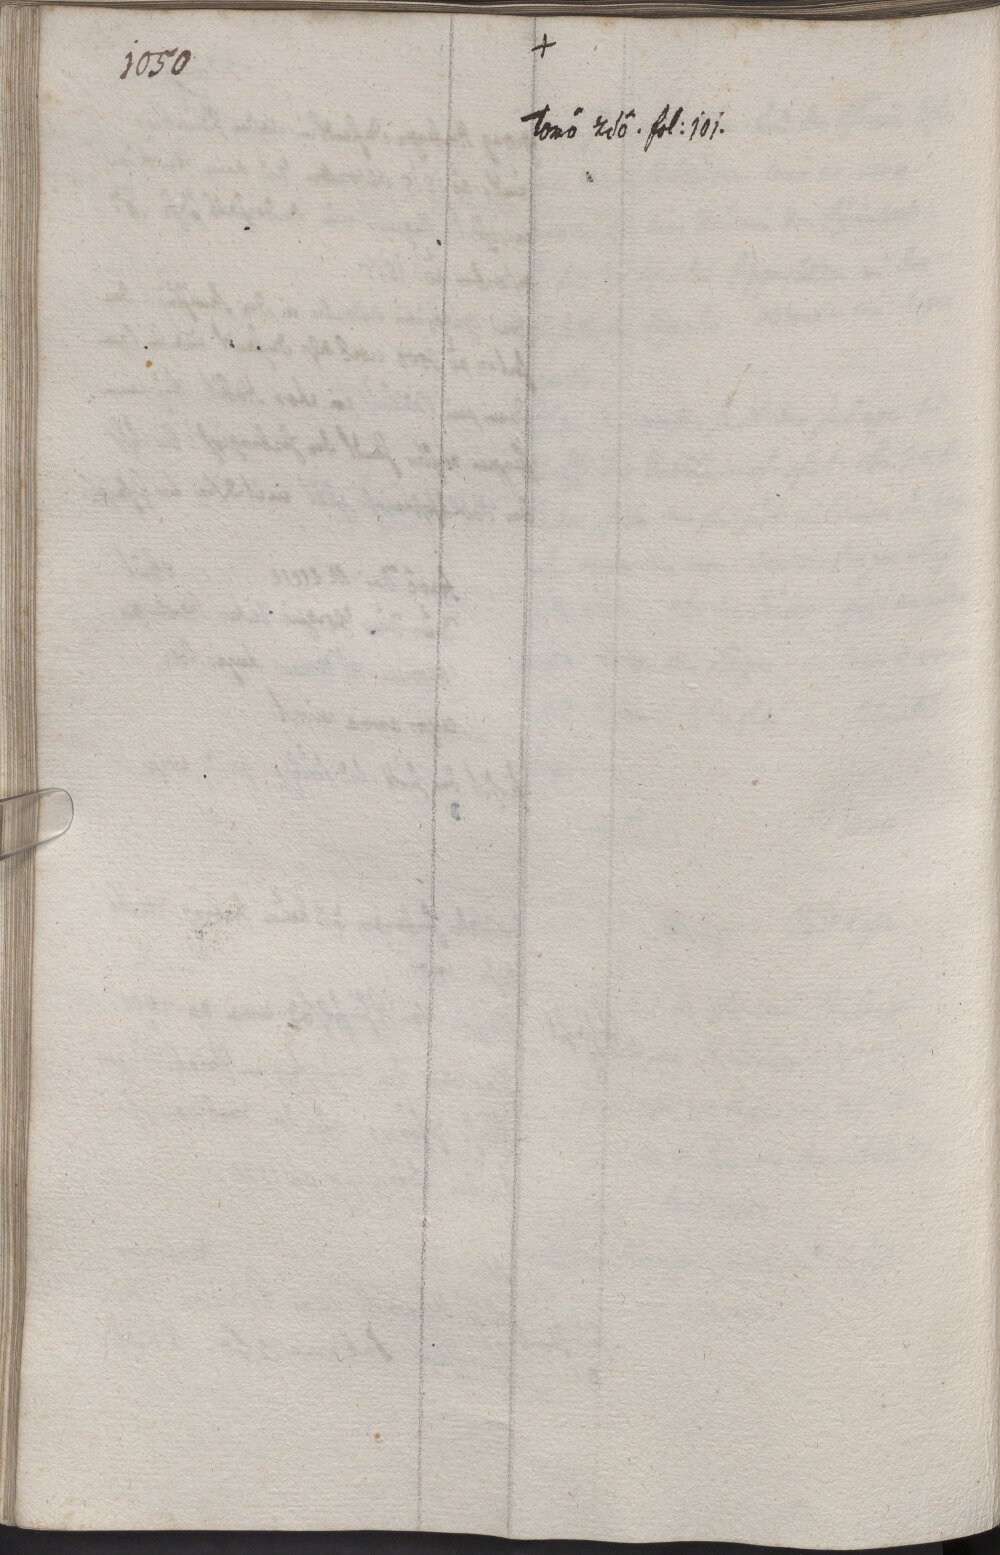 1050
+
tomo 2dô. fol: 101.